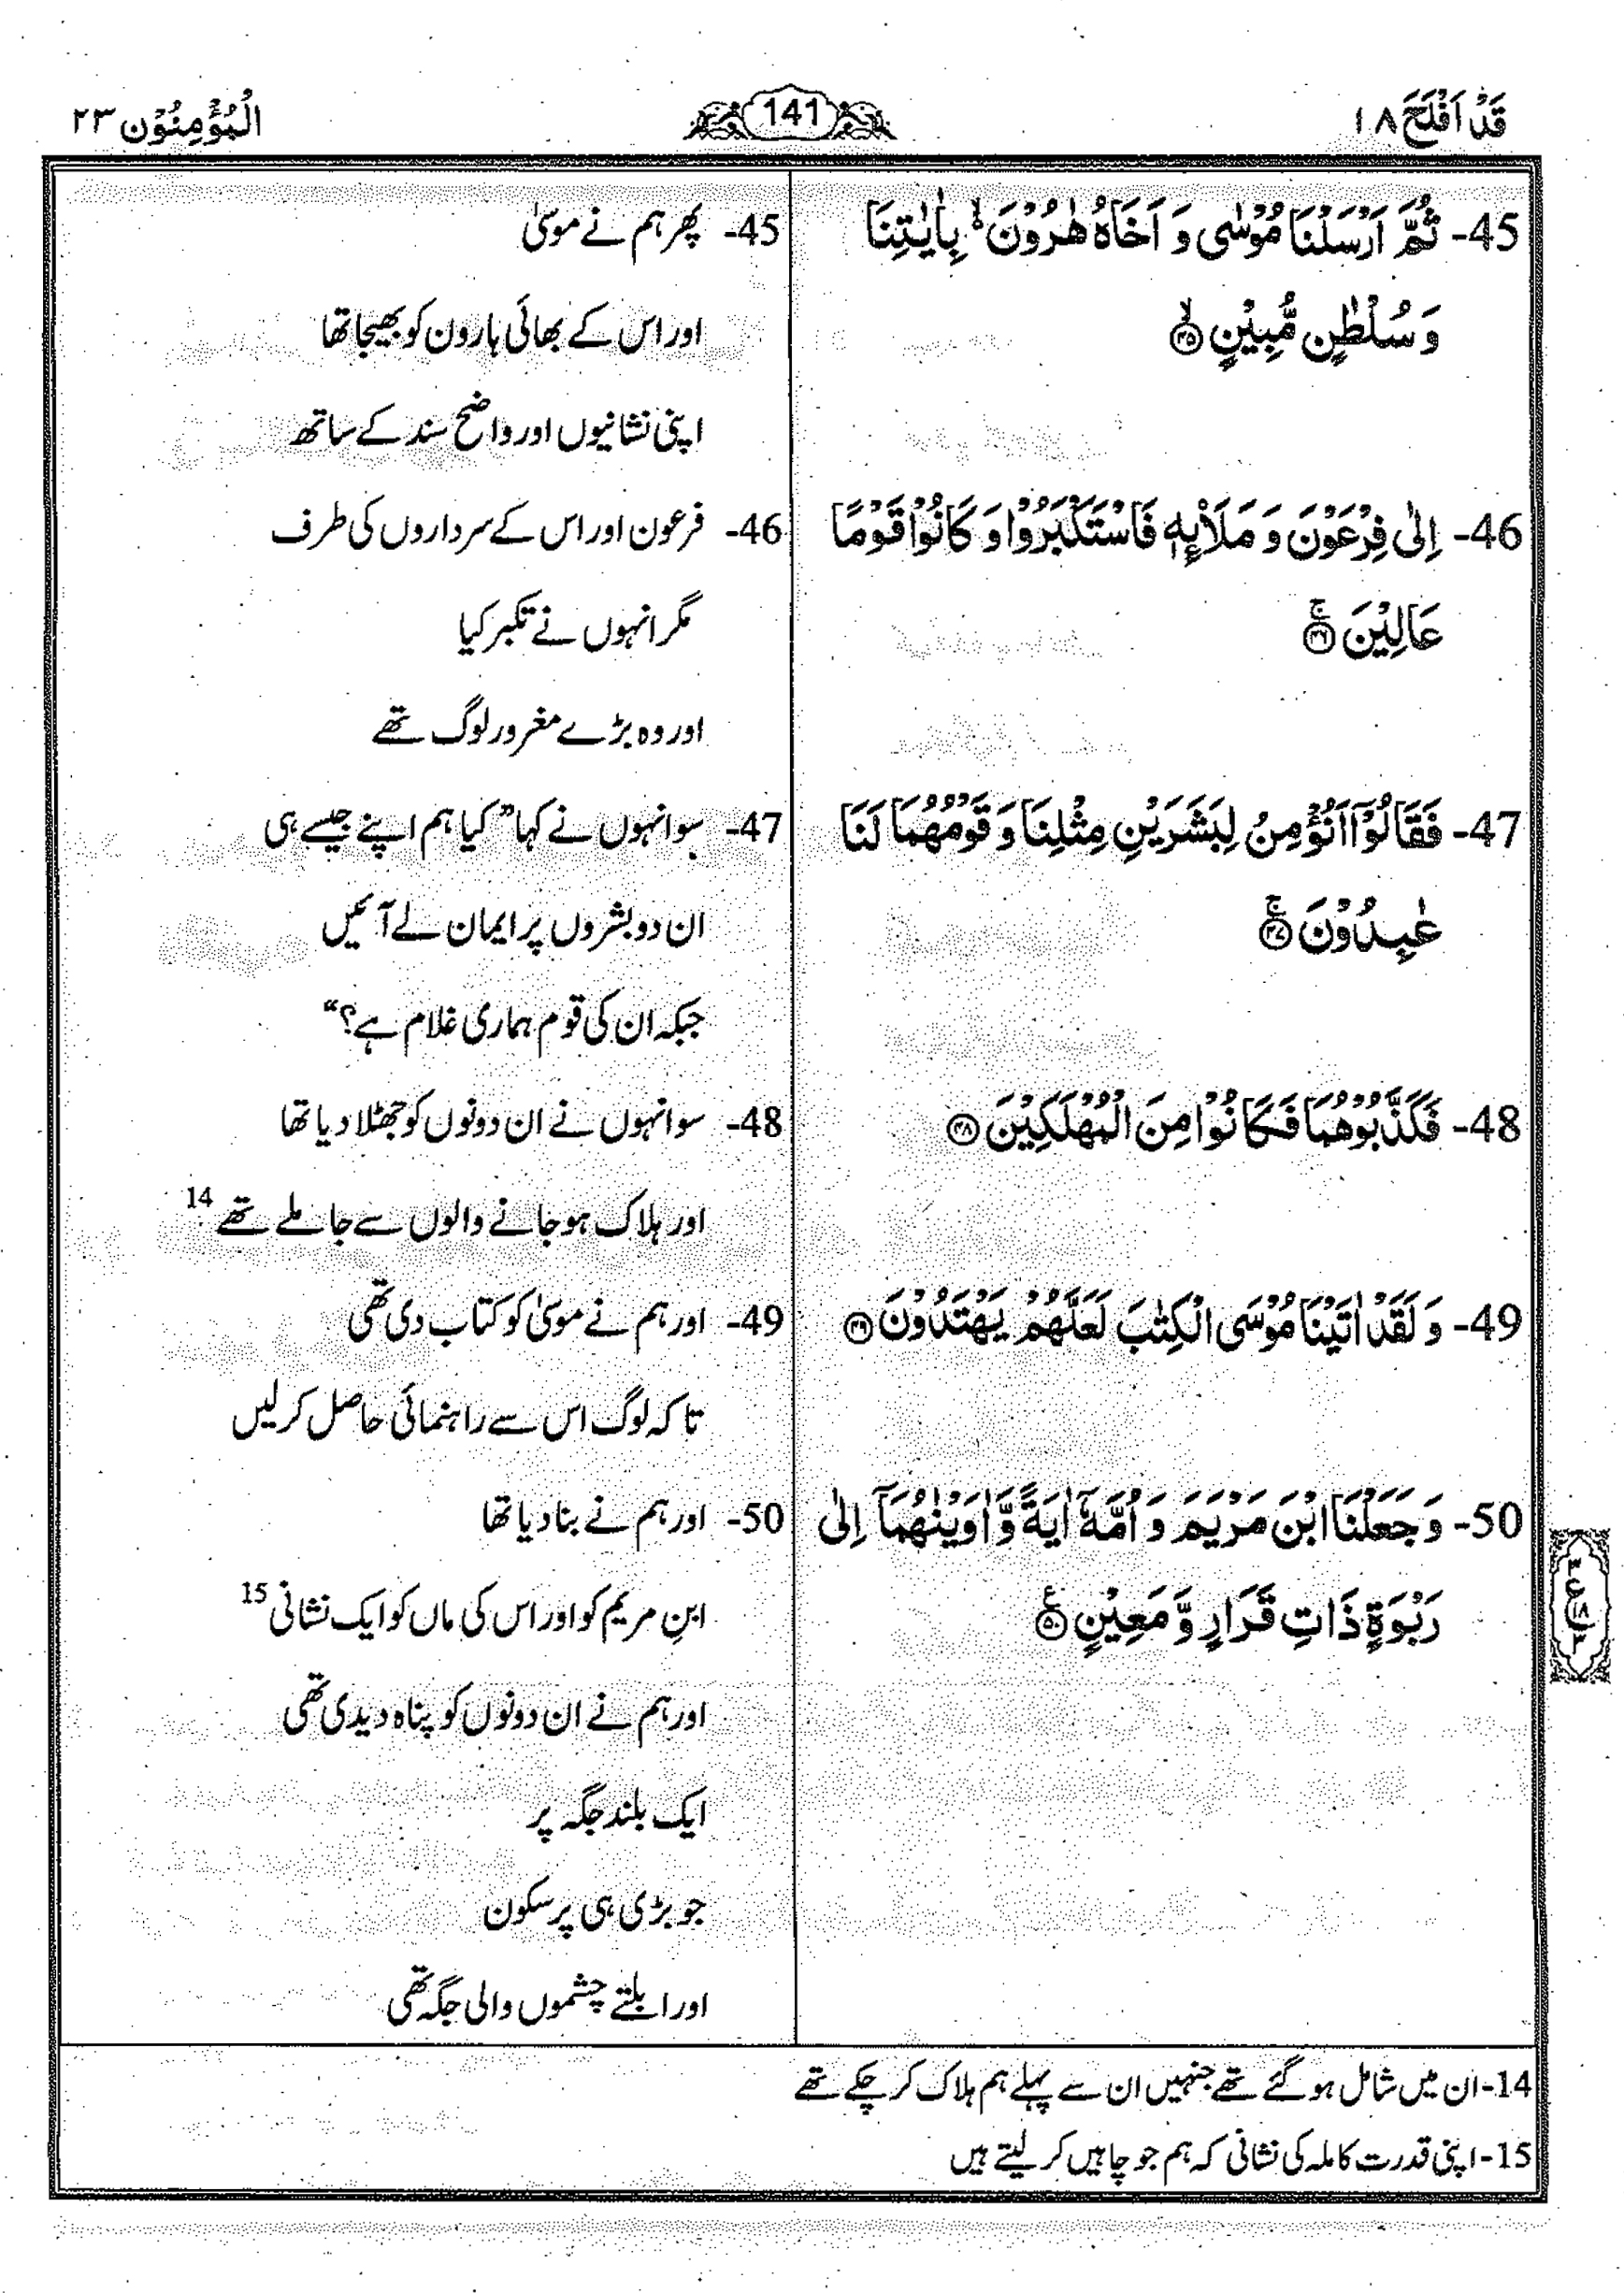 قَدْ اَفْلَحَ ۱۸
141
الْمُؤْمِنُوْن ۲۳
45- ثُمَّ اَرْسَلْنَا مُوْسٰى وَ اَخَاهُ هٰرُوْنَ ۙ۬ بِاٰيٰتِنَا
وَ سُلْطٰنٍ مُّبِيْنٍ ۙ﴿۴۵﴾
46- اِلٰى فِرْعَوْنَ وَ مَلَا۠ئِهٖ فَاسْتَكْبَرُوْا وَ كَانُوْا قَوْمًا
عَالِيْنَ ۚ﴿۴۶﴾
47- فَقَالُوْۤا اَنُؤْمِنُ لِبَشَرَيْنِ مِثْلِنَا وَ قَوْمُهُمَا لَنَا
عٰبِدُوْنَ ۚ﴿۴۷﴾
48- فَكَذَّبُوْهُمَا فَكَانُوْا مِنَ الْمُهْلَكِيْنَ ﴿۴۸﴾
49- وَ لَقَدْ اٰتَيْنَا مُوْسَى الْكِتٰبَ لَعَلَّهُمْ يَهْتَدُوْنَ ﴿۴۹﴾
50- وَ جَعَلْنَا ابْنَ مَرْيَمَ وَ اُمَّهٗۤ اٰيَةً وَّ اٰوَيْنٰهُمَاۤ اِلٰى
رَبْوَةٍ ذَاتِ قَرَارٍ وَّ مَعِيْنٍ ﴿۵۰﴾ع
45- پھر ہم نے موسیٰ
اور اس کے بھائی ہارون کو بھیجا تھا
اپنی نشانیوں اور واضح سند کے ساتھ
46- فرعون اور اس کے سرداروں کی طرف
مگر انہوں نے تکبر کیا
اور وہ بڑے مغرور لوگ تھے
47- سو انہوں نے کہا ”کیا ہم اپنے جیسے ہی
ان دو بشروں پر ایمان لے آئیں
جبکہ ان کی قوم ہماری غلام ہے؟“
48- سو انہوں نے ان دونوں کو جھٹلا دیا تھا
اور ہلاک ہو جانے والوں سے جا ملے تھے 14
49- اور ہم نے موسیٰ کو کتاب دی تھی
تا کہ لوگ اس سے راہنمائی حاصل کر لیں
50- اور ہم نے بنا دیا تھا
ابنِ مریم کو اور اس کی ماں کو ایک نشانی 15
اور ہم نے ان دونوں کو پناہ دیدی تھی
ایک بلند جگہ پر
جو بڑی ہی پر سکون
اور ابلتے چشموں والی جگہ تھی
14- ان میں شامل ہو گئے تھے جنہیں ان سے پہلے ہم ہلاک کر چکے تھے
15- اپنی قدرت کاملہ کی نشانی کہ ہم جو چاہیں کر لیتے ہیں